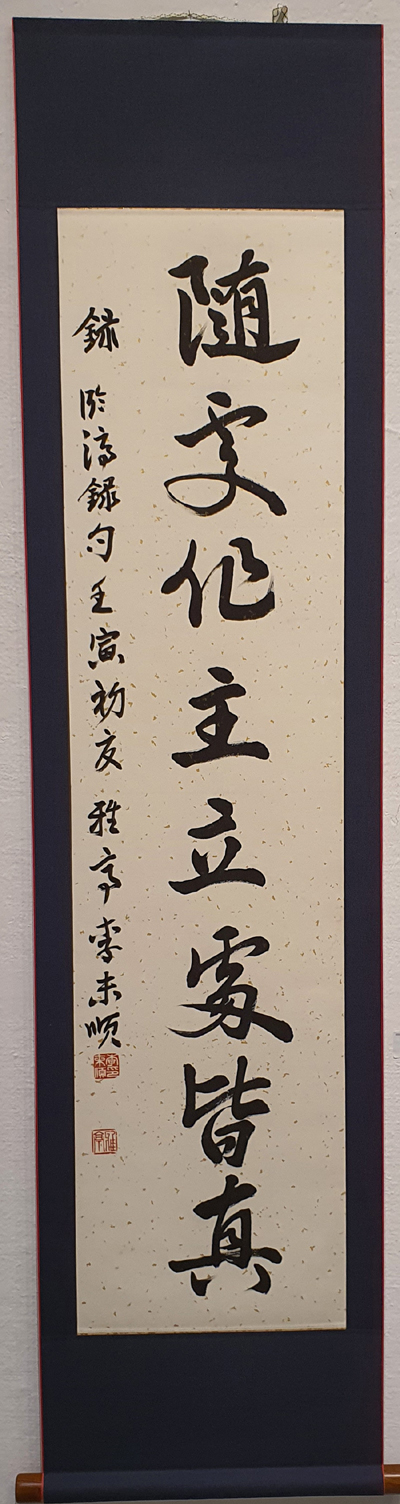 隨處作主立處皆真
錄臨濟錄句 壬寅初夏 雅亭 李未順